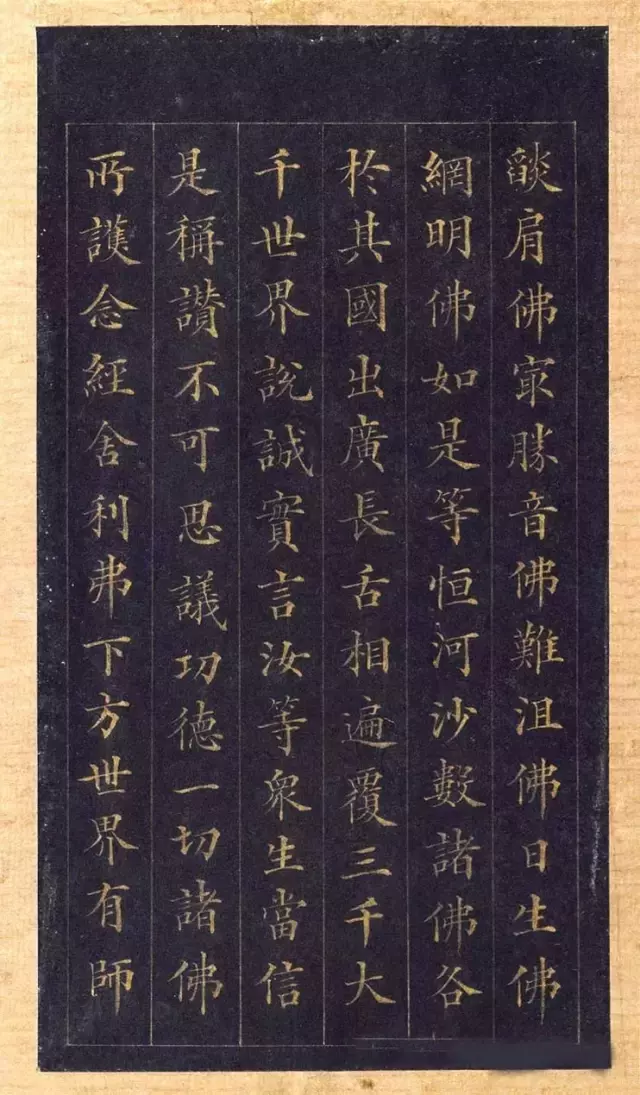 燄肩佛㝡勝音佛難沮佛日生佛
網明佛如是等恒河沙數諸佛各
扵其國出廣長舌相遍覆三千大
千世界說誠實言汝等衆生當信
是稱讃不可思議功德一切諸佛
所護念經舍利弗下方世界有師